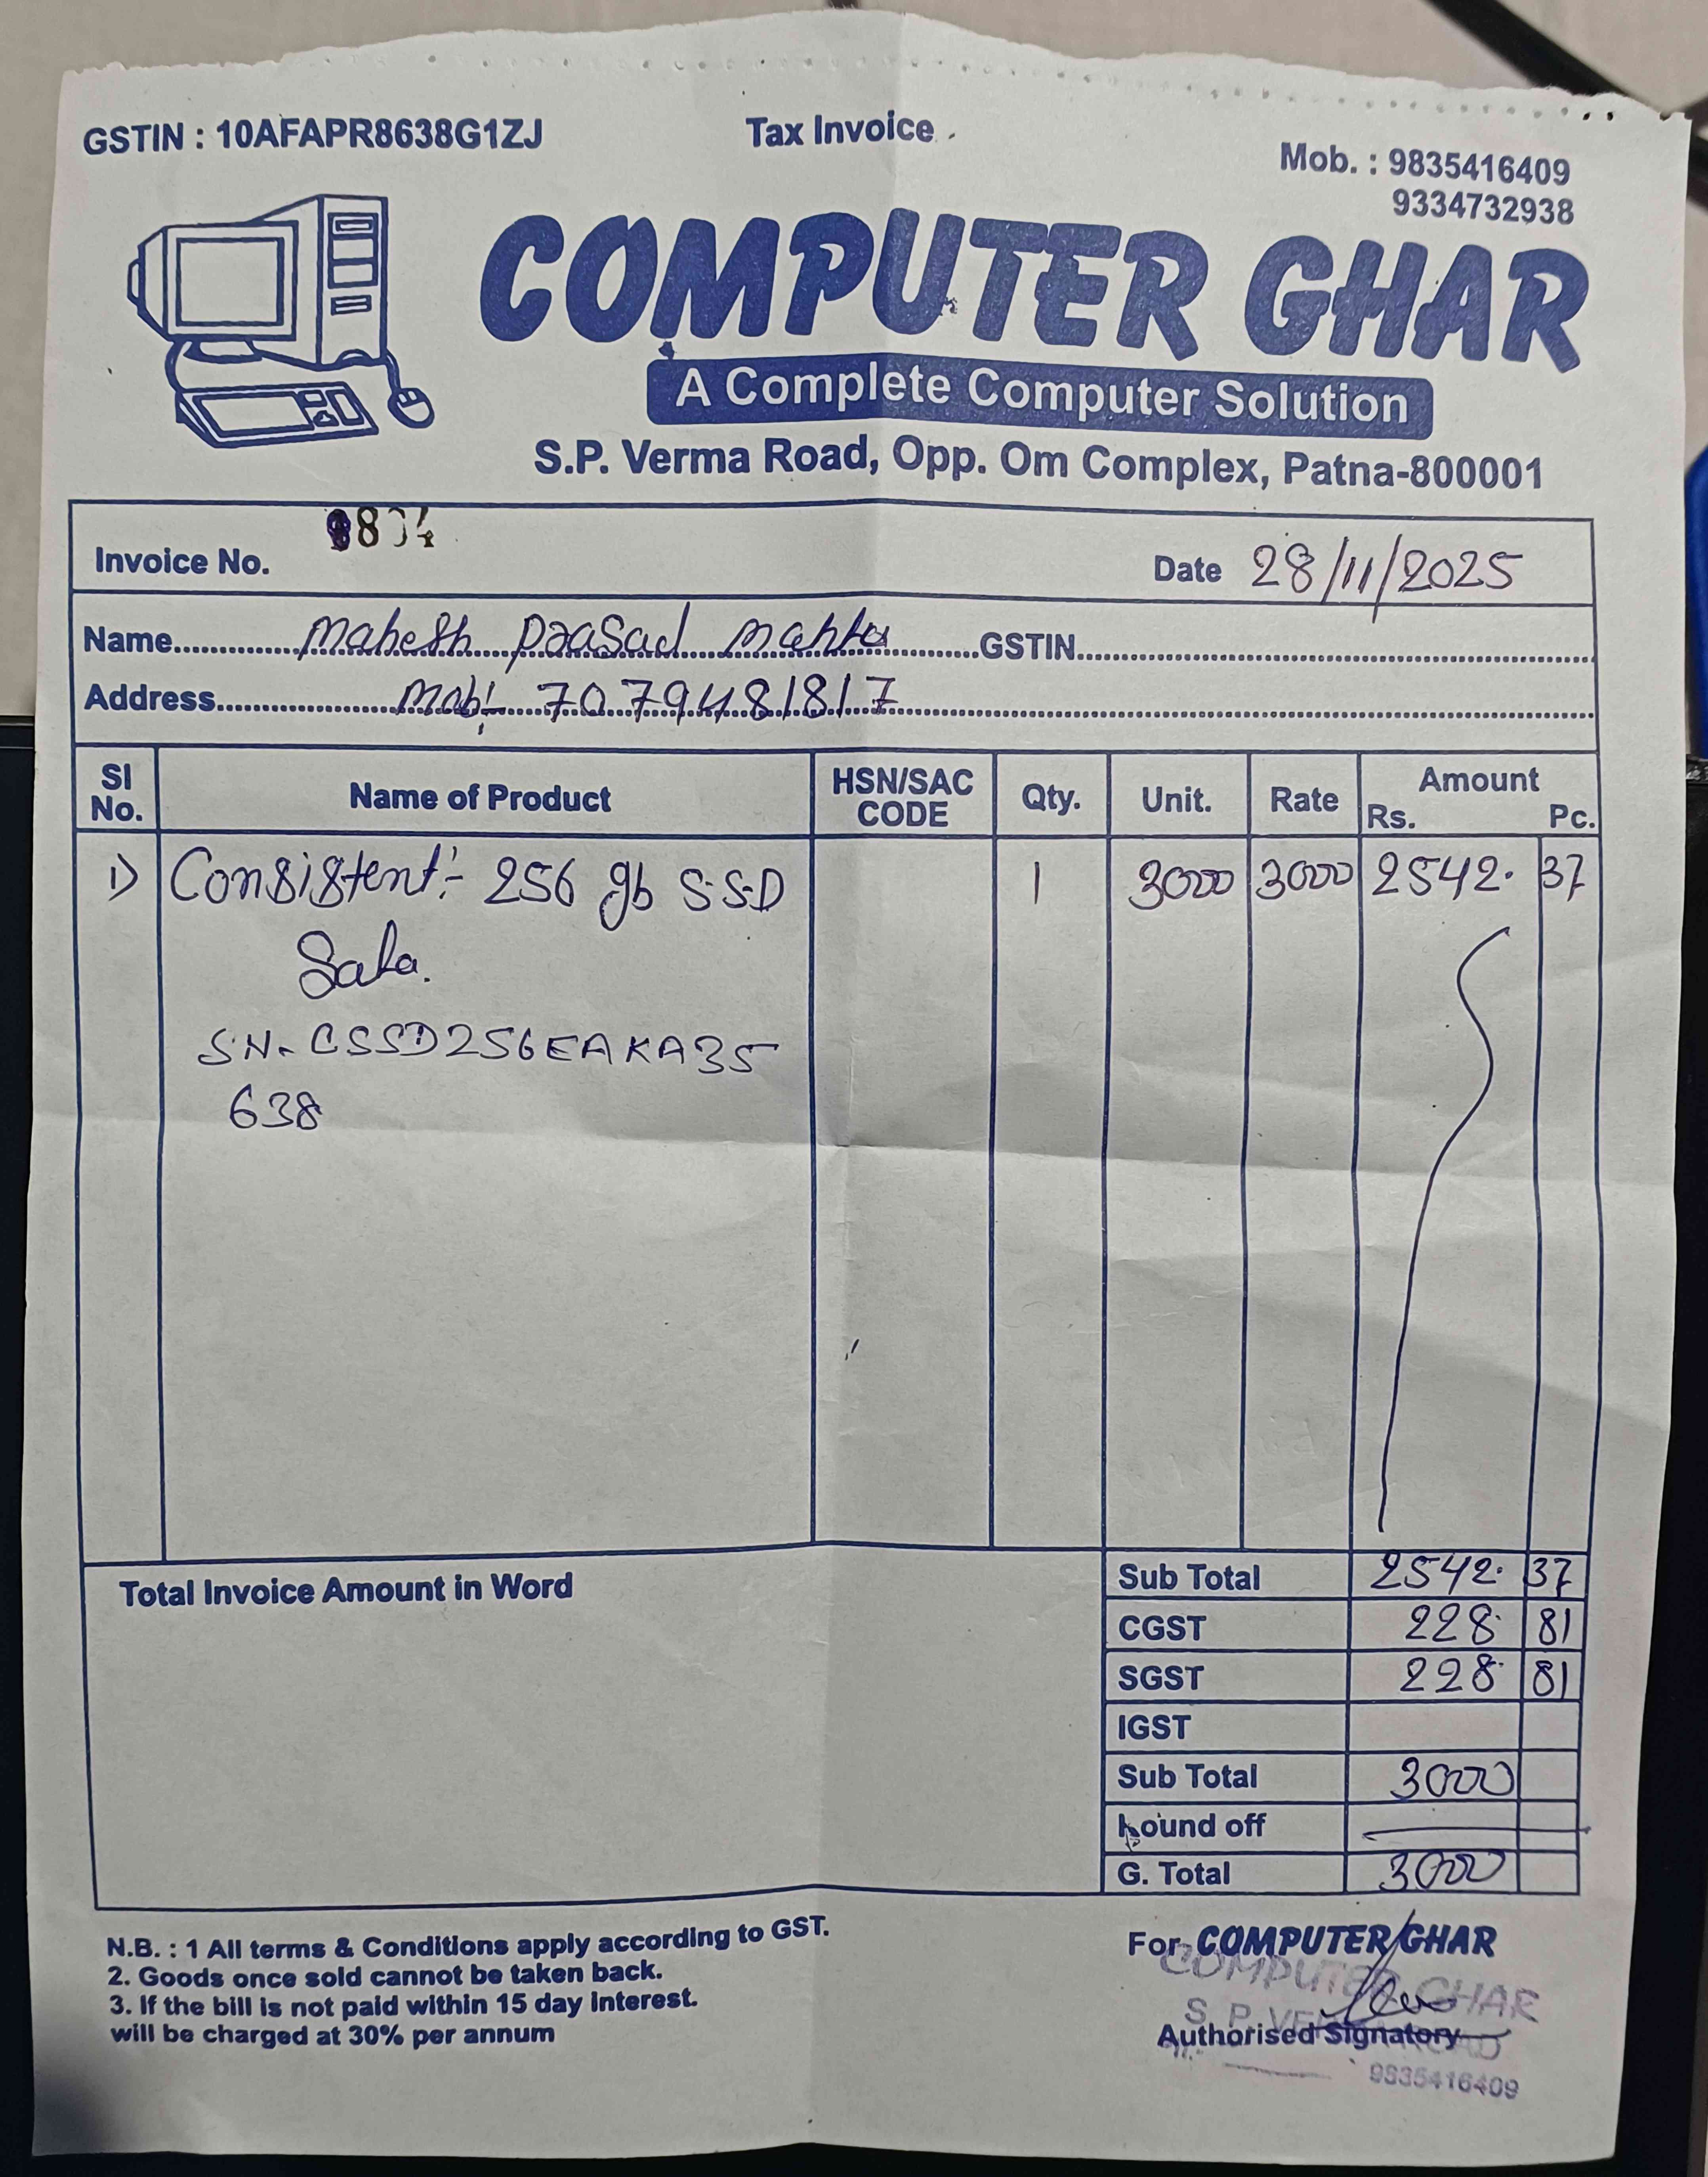 GSTIN : 10AFAPR8638G1ZJ
Tax Invoice
Mob. : 9835416409
9334732938
COMPUTER GHAR
A Complete Computer Solution
S.P. Verma Road, Opp. Om Complex, Patna-800001
Invoice No.
Date 28/11/2025
Name Mahesh Prasad GSTIN
Address Mob:- 7079481817
SI No. Name of Product HSN/SAC CODE Qty. Unit. Rate Amount Rs. Pc.
1) Consistent:- 256 gb SSD 1 3000 3000 2542. 37
SN- CSSD256EAKA35
638
Total Invoice Amount in Word
Sub Total 2542. 37
CGST 228. 81
SGST 228. 81
IGST
Sub Total 3000
Round off
G. Total 3000
N.B. : 1 All terms & Conditions apply according to GST.
2. Goods once sold cannot be taken back.
3. If the bill is not paid within 15 day interest.
will be charged at 30% per annum
For COMPUTER GHAR
COMPUTER GHAR
Authorised Signatory
9835416409